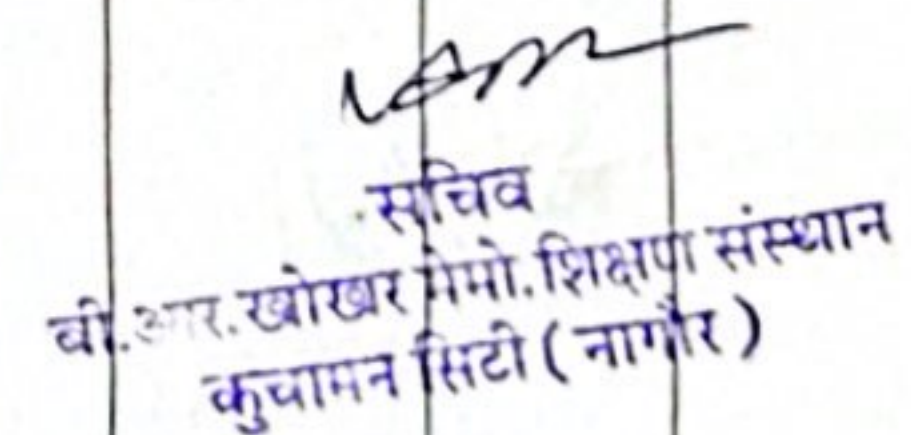 सचिव
बी.आर.खोखर मेमो.शिक्षण संस्थान
कुचामन सिटी ( नागौर )